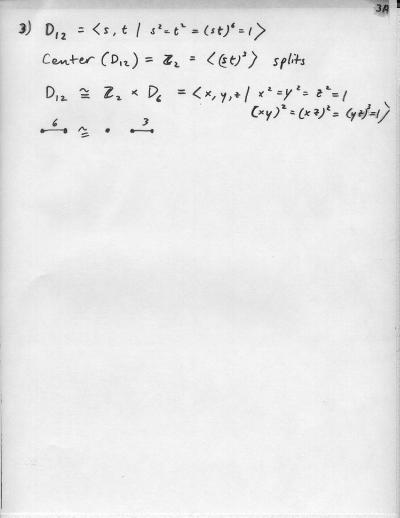 3A
3) D₁₂ = ⟨s, t | s² = t² = (st)⁶ = 1⟩
Center (D₁₂) = ℤ₂ = ⟨(st)³⟩ splits
D₁₂ ≅ ℤ₂ × D₆ = ⟨x, y, z | x² = y² = z² = 1
(xy)² = (xz)² = (yz)³ = 1⟩
6 ≅ · 3